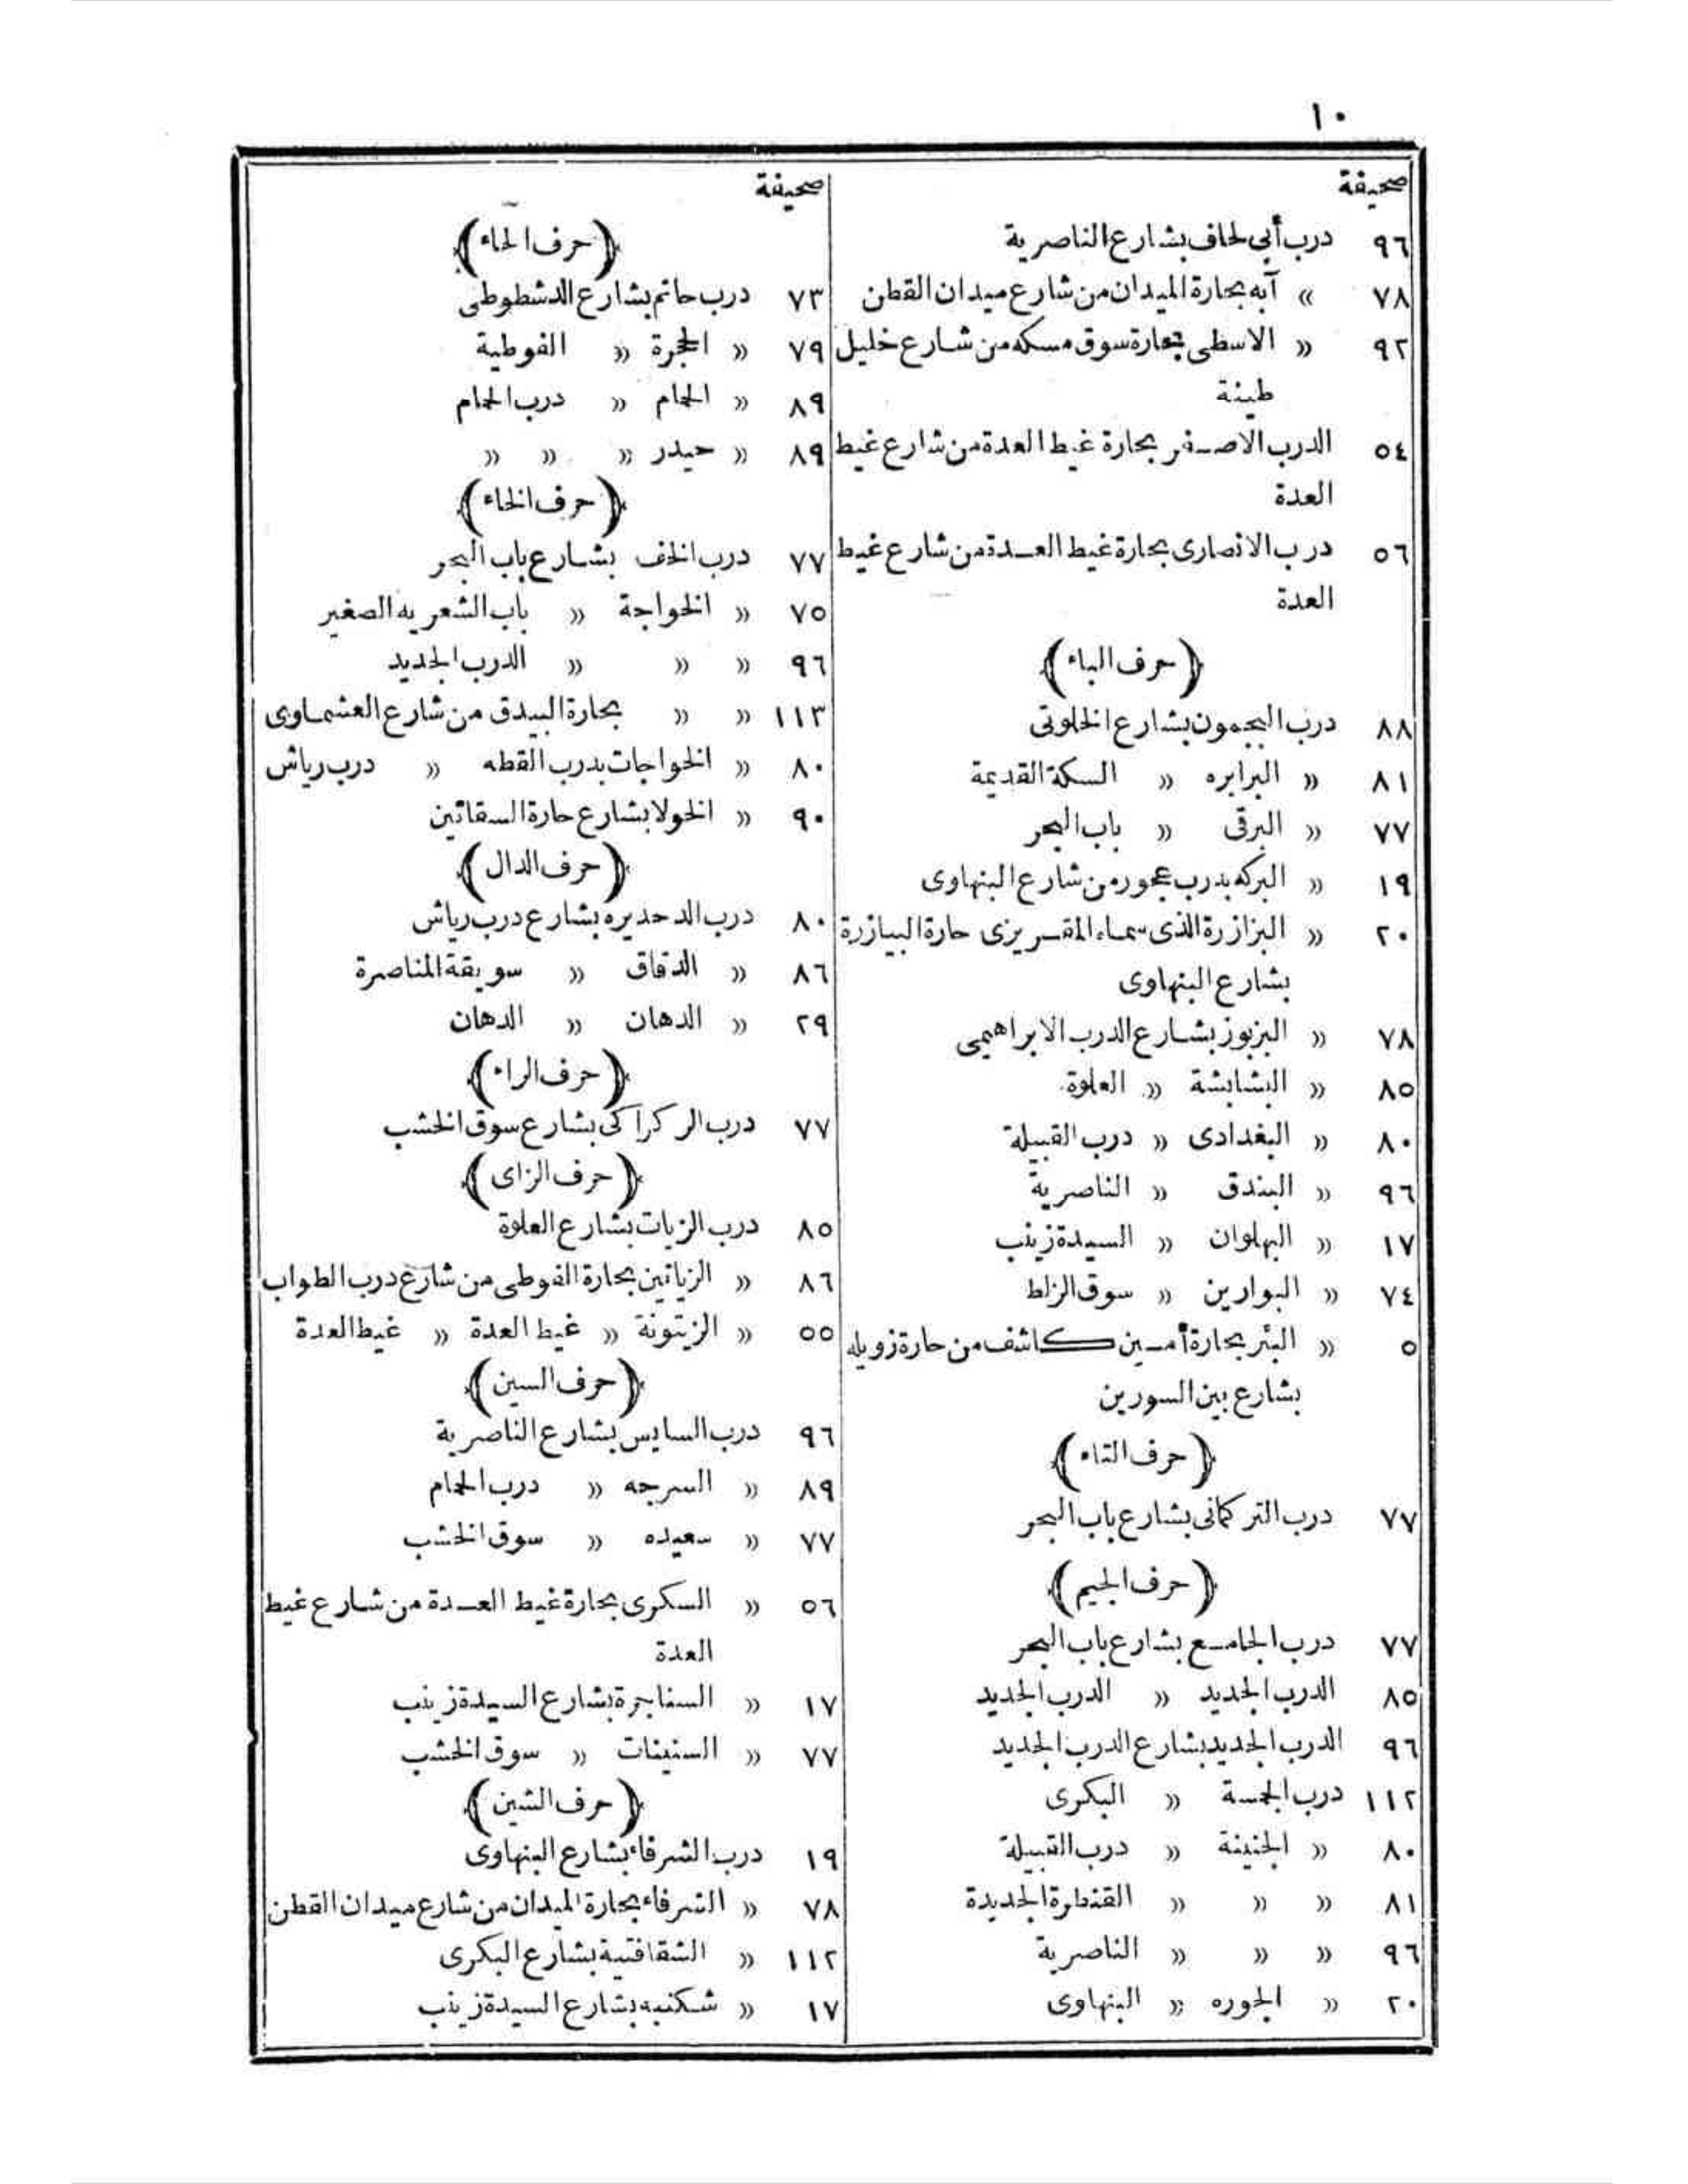 ١٠
صحيفة
٩٦ درب أبي لحاف بشارع الناصرية
٧٨ » آيه بحارة الميدان من شارع ميدان القطن
٩٢ » الاسطى بحارة سوق مسكه من شارع خليل
طينة
٥٤ الدرب الاصفر بحارة غيط العدة من شارع غيط
العدة
٥٦ درب الانصارى بحارة غيط العدة من شارع غيط
العدة
(حرف الباء)
٨٨ درب البجمون بشارع الخلوتى
٨١ » البرابره » السكة القديمة
٧٧ » البرقى » باب البحر
١٩ » البركه بدرب عجور من شارع البنهاوى
٢٠ » البزازرة الذى سماه المقريزى حارة البيازرة
بشارع البنهاوى
٧٨ » البزبوز بشارع الدرب الابراهيمى
٨٥ » البشابشة » العلوة
٨٠ » البغدادى » درب القبيلة
٩٦ » البندق » الناصرية
١٧ » البهلوان » السيدة زينب
٧٤ » البوارين » سوق الزلط
٥ » البئر بحارة أمين كاشف من حارة زويله
بشارع بين السورين
(حرف التاء)
٧٧ درب التركمانى بشارع باب البحر
(حرف الجيم)
٧٧ درب الجامع بشارع باب البحر
٨٥ الدرب الجديد » الدرب الجديد
٩٦ الدرب الجديد بشارع الدرب الجديد
١١٢ درب الجمسة » البكرى
٨٠ » الجنينة » درب القبيلة
٨١ » » » القنطرة الجديدة
٩٦ » » » الناصرية
٢٠ » الجوره » البنهاوى
صحيفة
(حرف الحاء)
٧٣ درب حاتم بشارع الدشطوطى
٧٩ » الحجرة » الفوطية
٨٩ » الحمام » درب الحمام
٨٩ » حيدر » » »
(حرف الخاء)
٧٧ درب الخف بشارع باب البحر
٧٥ » الخواجة » باب الشعريه الصغير
٩٦ » » » الدرب الجديد
١١٣ » » بحارة البيدق من شارع العشماوى
٨٠ » الخواجات بدرب القطه » درب رياش
٩٠ » الخولا بشارع حارة السقائين
(حرف الدال)
٨٠ درب الدحديره بشارع درب رياش
٨٦ » الدقاق » سويقة المناصرة
٢٩ » الدهان » الدهان
(حرف الراء)
٧٧ درب الركراكى بشارع سوق الخشب
(حرف الزاى)
٨٥ درب الزيات بشارع العلوة
٨٦ » الزياتين بحارة الفوطى من شارع درب الطواب
٥٥ » الزيتونة » غيط العدة » غيط العدة
(حرف السين)
٩٦ درب السايس بشارع الناصرية
٨٩ » السرجه » درب الحمام
٧٧ » سعيده » سوق الخشب
٥٦ » السكرى بحارة غيط العدة من شارع غيط
العدة
١٧ » السناجرة بشارع السيدة زينب
٧٧ » السنينات » سوق الخشب
(حرف الشين)
١٩ درب الشرفاء بشارع البنهاوى
٧٨ » الشرفاء بحارة الميدان من شارع ميدان القطن
١١٢ » الشقافتية بشارع البكرى
١٧ » شكنبه بشارع السيدة زينب